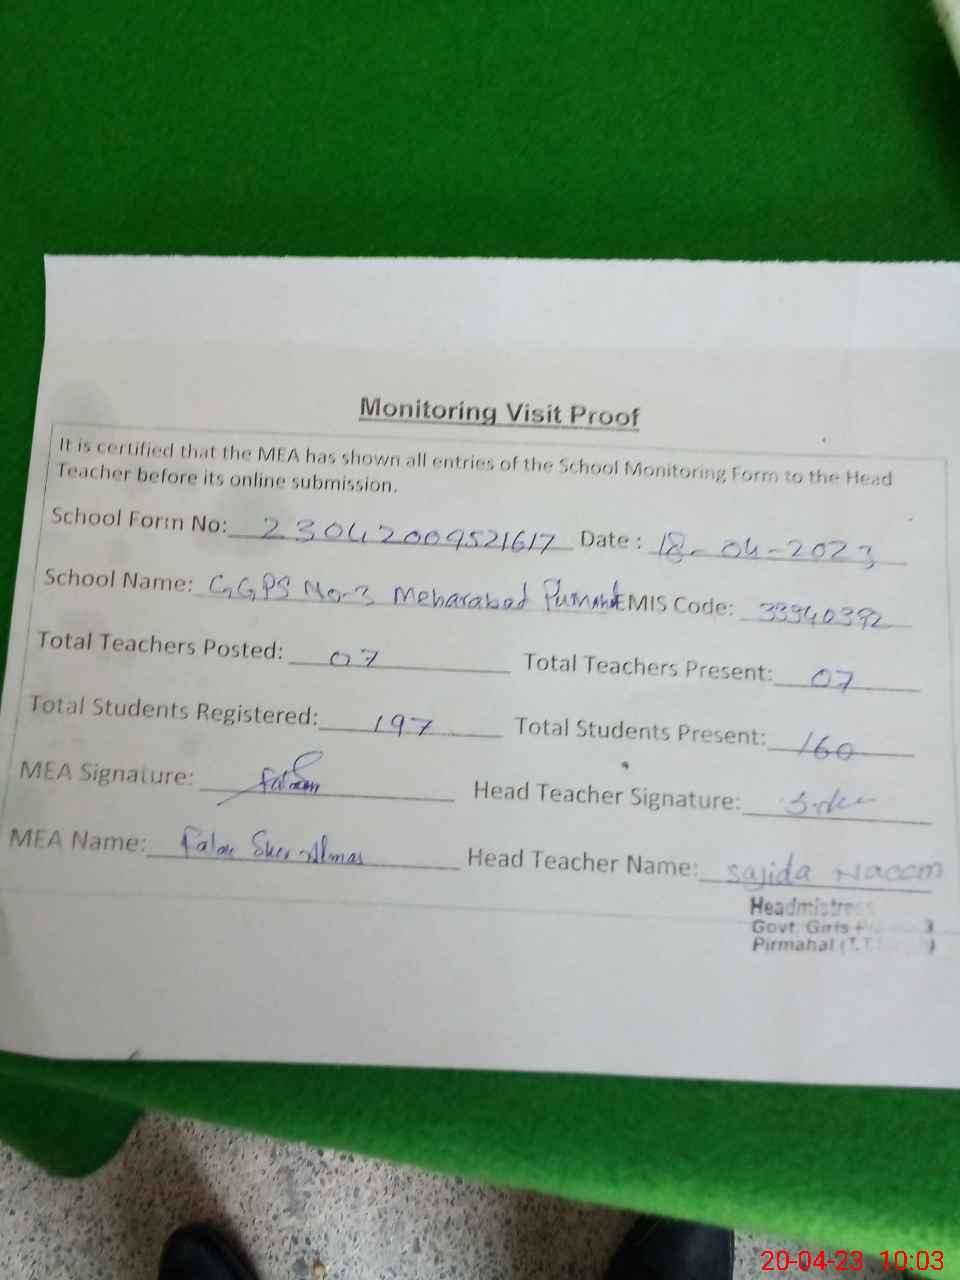 Monitoring Visit Proof
It is certified that the MEA has shown all entries of the School Monitoring Form to the Head
Teacher before its online submission.
School Form No: 23042009521617 Date : 18-04-2023
School Name: GGPS No-3 Meharabad EMIS Code: 33340392
Total Teachers Posted: 07 Total Teachers Present: 07
Total Students Registered: 197 Total Students Present: 160
MEA Signature: Head Teacher Signature:
MEA Name: Falak Sher Almas Head Teacher Name: Sajida Naeem
Headmistress
Govt. Girls 3
Pirmahal (T.T
20-04-23 10:03